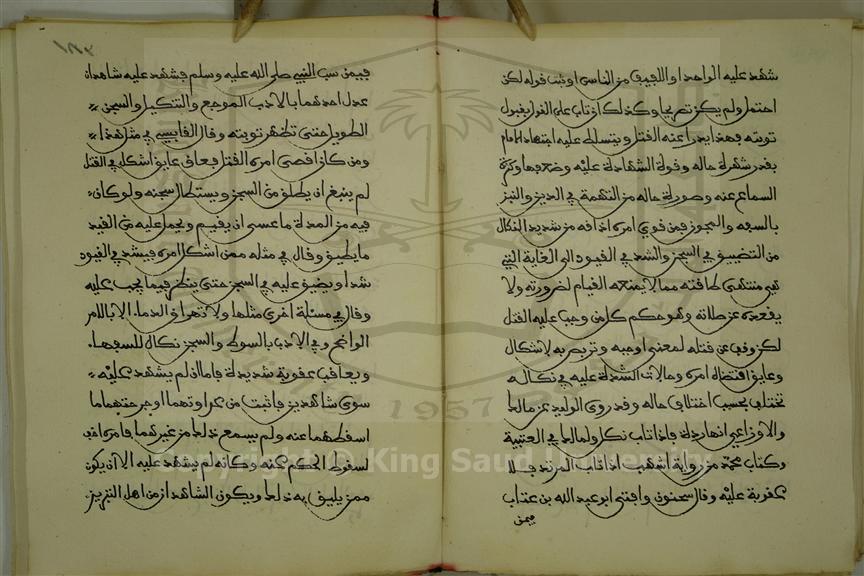 شهد عليه الواحد او اللفيف من الناس او ثبت قوله لكن
احتمل ولم يكن تصريحا وكذلك ان تاب على القول بقبول
توبته فهذا يدرا عنه القتل ويتسلط عليه اجتهاد الامام
بقدر شهرة حاله وقوة الشهادة عليه وضعفها وكثرة
السماع عنه وصورة حاله من التهمة في الدين والنبز
بالسفه والمجون فمن قوي امره اذاقه من شديد النكال
من التضييق في السجن والشد في القيود الى الغاية التي
هي منتهى طاقته مما لا يمنعه القيام لضرورته ولا
يقعده عن صلاته وهو حكم كل من وجب عليه القتل
لكن وقف عن قتله لمعنى اوجبه وتربص به لاشكال
وعايق اقتضاه امره وحالات الشدة عليه في نكاله
تختلف بحسب اختلاف حاله وقد روى الوليد عن مالك
والاوزاعي انها ردة فاذا تاب نكل ولمالك في العتبية
وكتاب محمد من رواية اشهب اذا تاب المرتد فلا
عقوبة عليه وقال سحنون وافتى ابو عبد الله بن عتاب
فيمن
فيمن سب النبي صلى الله عليه وسلم فشهد عليه شاهدان
عدل احدهما بالادب الموجع والتنكيل والسجن
الطويل حتى تظهر توبته وقال القابسي في مثل هذا
ومن كان اقصى امره القتل فعاق عايق اشكل في القتل
لم ينبغ ان يطلق من السجن ويستطال سجنه ولو كان
فيه من المدة ما عسى ان يقيم ويحمل عليه من القيد
ما يطيق وقال في مثله ممن اشكل امره فيشد في القيود
شدا ويضيق عليه في السجن حتى ينظر فيما يجب عليه
وقال في مسئلة اخرى مثلها ولا تهراق الدما الا بالامر
الواضح وفي الادب بالسوط والسجن نكال للسفها
ويعاقب عقوبة شديدة فاما ان لم يشهد عليه
سوى شاهدين فاثبت من عداوتهما او جرحتهما ما
اسقطهما عنه ولم يسمع ذلك من غيرهما فامره اخف
لسقوط الحكم عنه وكانه لم يشهد عليه الا ان يكون
ممن يليق به ذلك ويكون الشاهدان من اهل التبريز
Copyright © King Saud University
1957